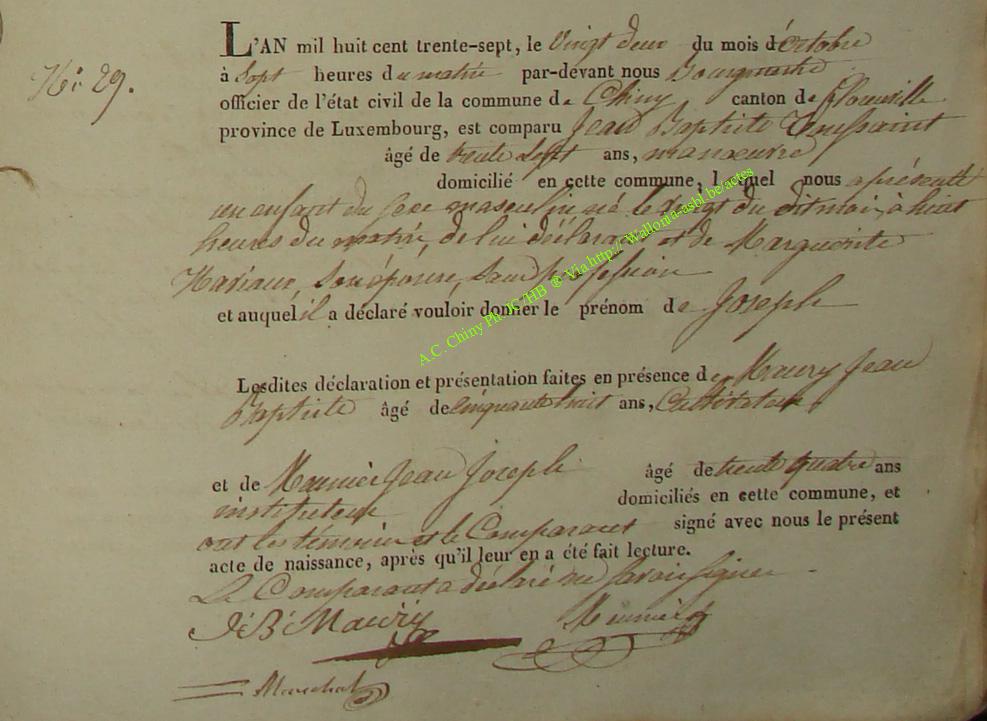 L'AN mil huit cent trente-sept, le Vingt deux du mois d'octobre
N.º 29.
à Sept heures du matin par-devant nous Bourgmestre
officier de l'état civil de la commune de Chiny canton de Florenville
province de Luxembourg, est comparu Jean Baptiste Toussaint
âgé de trente Sept ans, manoeuvre
domicilié en cette commune, lequel nous a présenté
un enfant du sexe masculin né le vingt du dit mois, à huit
heures du matin, de lui déclarant et de Marguerite
Hariaux, son épouse, sans profession
et auquel il a déclaré vouloir donner le prénom de Joseph
Lesdites déclaration et présentation faites en présence de Maury Jean
Baptiste âgé de cinquante huit ans, Cultivateur
et de Meunier Jean Joseph âgé de trente quatre ans
instituteur domiciliés en cette commune, et
ont les témoins et le Comparant signé avec nous le présent
acte de naissance, après qu'il leur en a été fait lecture.
Le Comparant a déclaré ne savoir signer
J B Maury Meunier
Marechal
A.C. Chiny Ph JC/HB ® Via http://Wallonia-asbl.be/actes